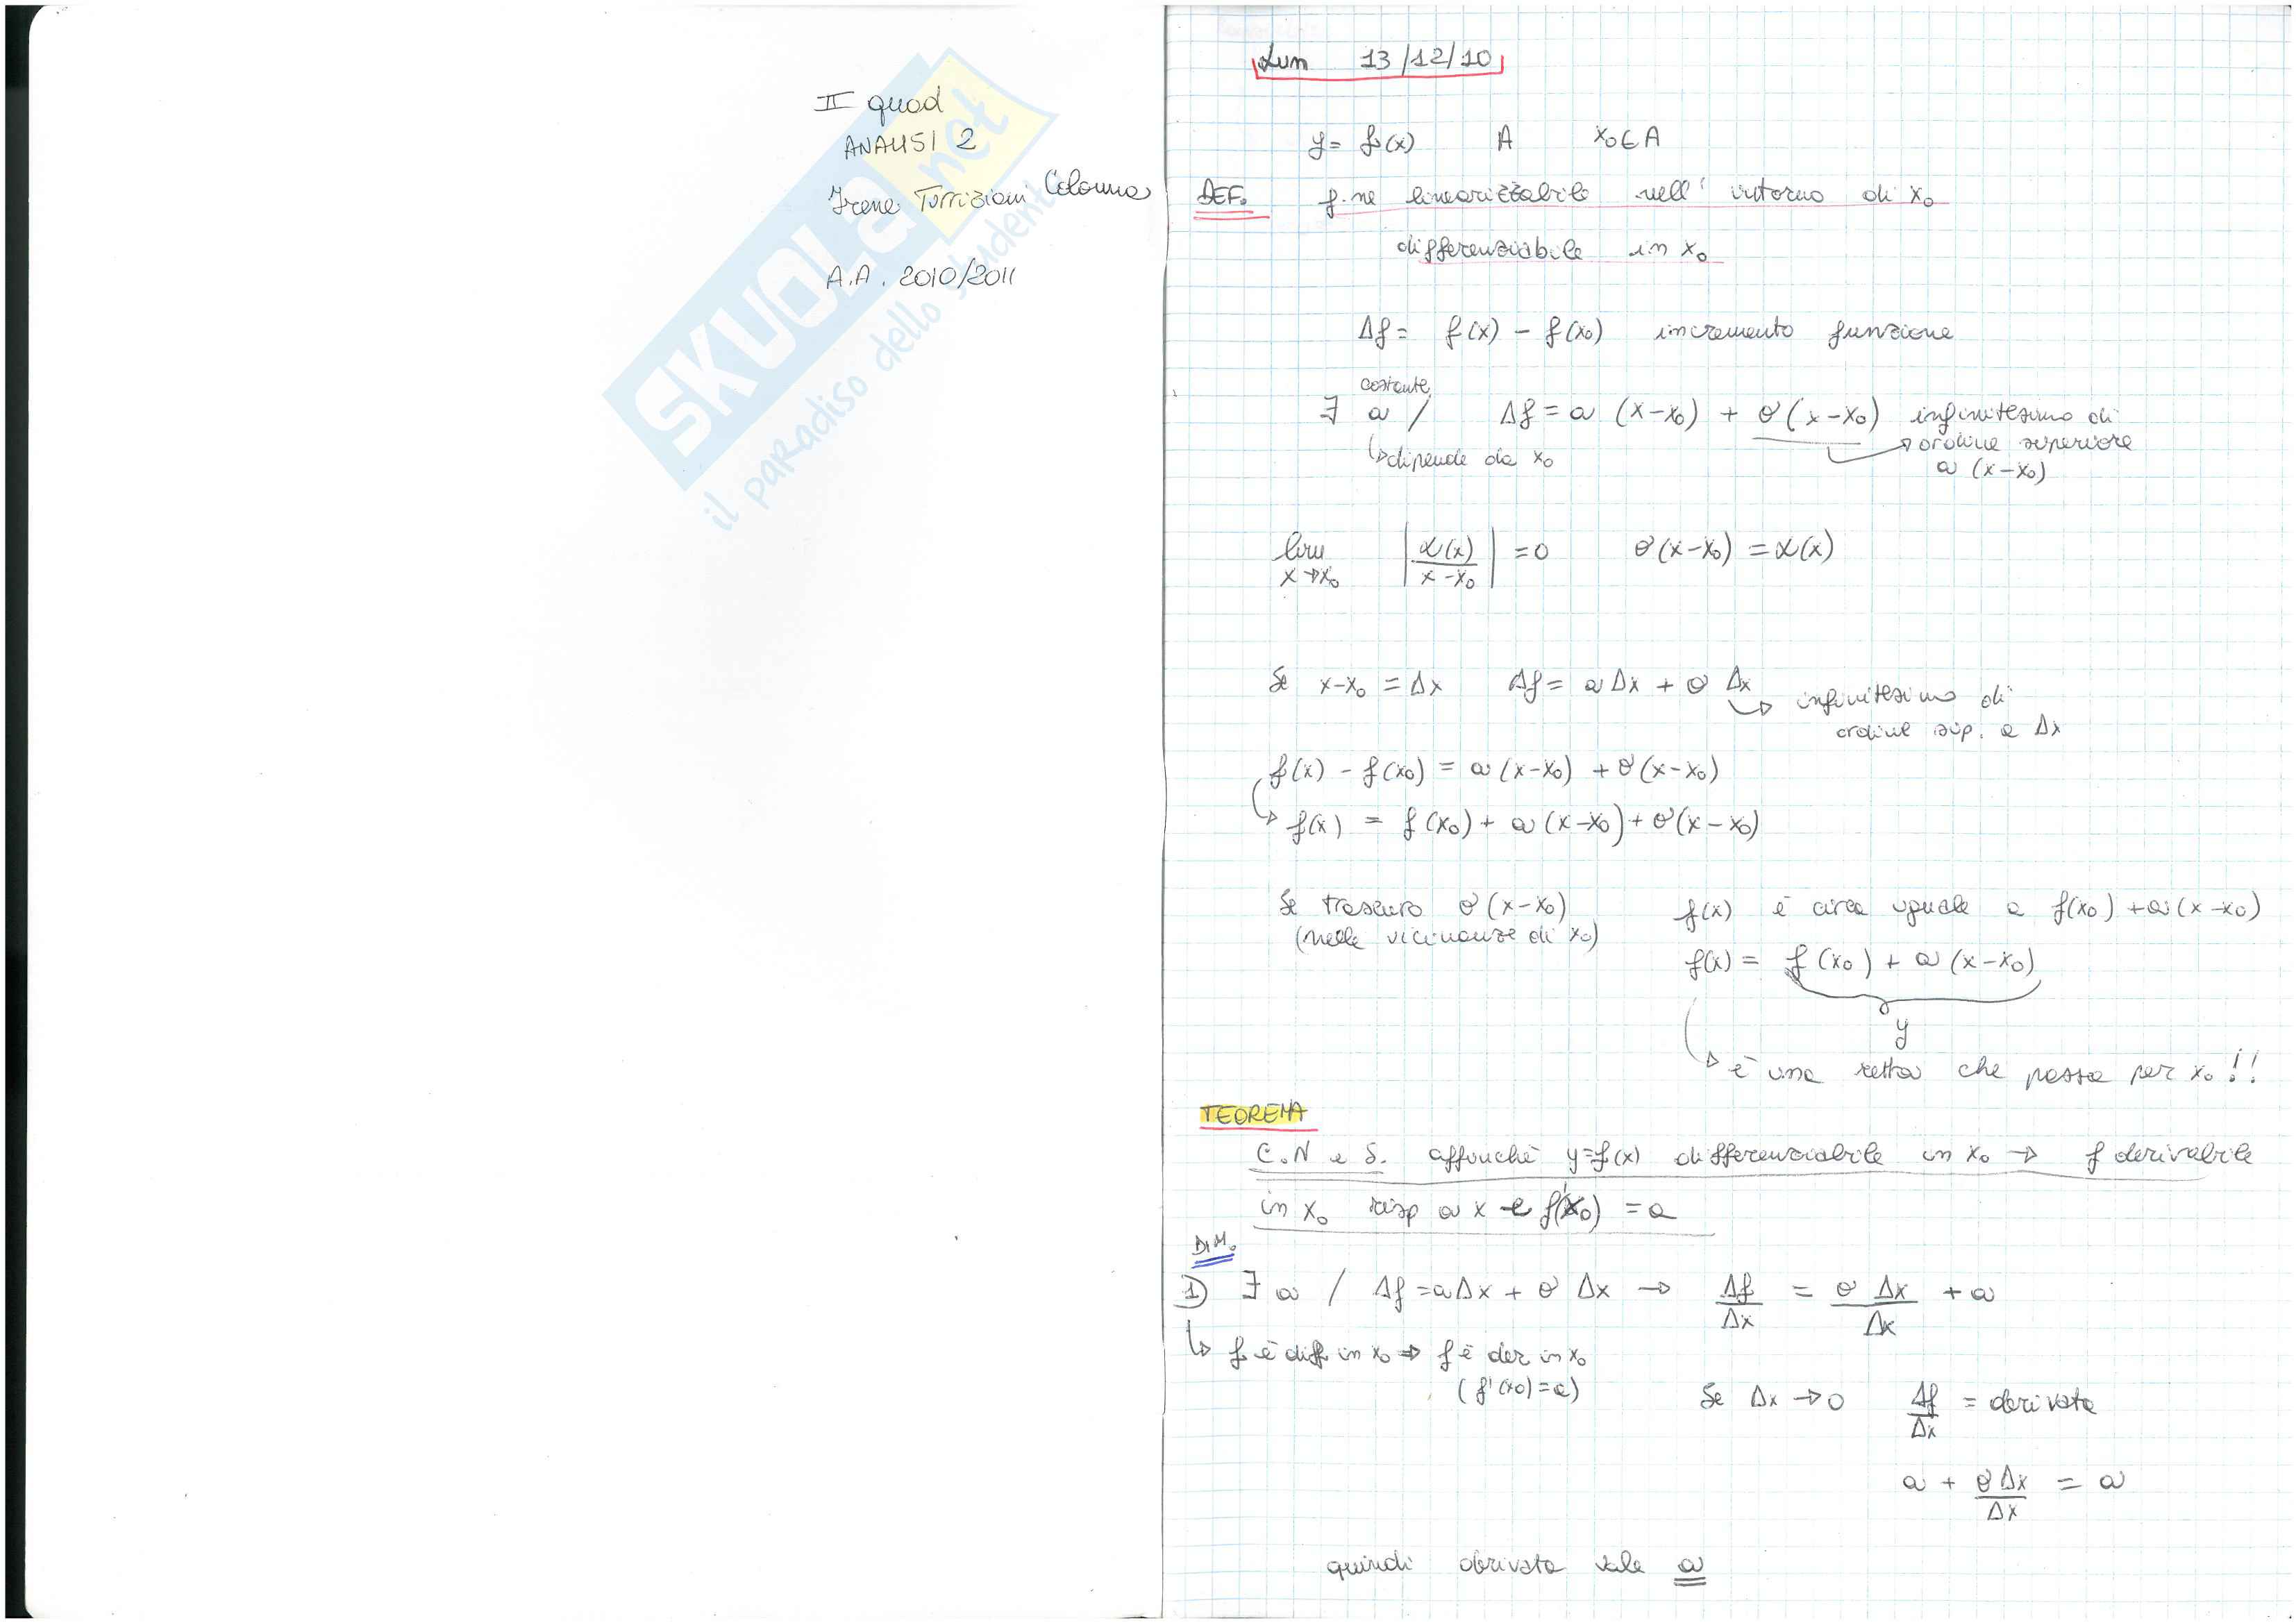 II quad
ANALISI 2
Irene Torrisiani Colonna
A.A. 2010/2011
SKUOLA.net
il paradiso dello studente
Lun 13/12/10
y = f(x) A x₀∈A
DEF. f.ne linearizzabile nell'intorno di x₀
differenziabile in x₀
Δf = f(x) - f(x₀) incremento funzione
costante
∃ a / Δf = a (x-x₀) + o(x-x₀) infinitesimo di
ordine superiore
↳dipende da x₀
a (x-x₀)
lim x→x₀ |α(x)/(x-x₀)| = 0 o(x-x₀) = α(x)
Se x-x₀ = Δx Δf = a Δx + o Δx → infinitesimo di
ordine sup. a Δx
f(x) - f(x₀) = a (x-x₀) + o(x-x₀)
↳ f(x) = f(x₀) + a (x-x₀) + o(x-x₀)
Se trascuro o(x-x₀) f(x) è circa uguale a f(x₀) + a(x-x₀)
(nelle vicinanze di x₀)
f(x) = f(x₀) + a (x-x₀)
y
↳ è una retta che passa per x₀!!
TEOREMA
C.N e S. affinché y=f(x) differenziabile in x₀ → f derivabile
in x₀ risp a x e f'(x₀) = a
DIM.
1) ∃ a / Δf = aΔx + o Δx → Δf/Δx = o Δx/Δx + a
↳ f è diff in x₀ ⇒ f è der in x₀
(f'(x₀)=a)
Se Δx → 0 Δf/Δx = derivata
a + o Δx/Δx = a
quindi derivata vale a